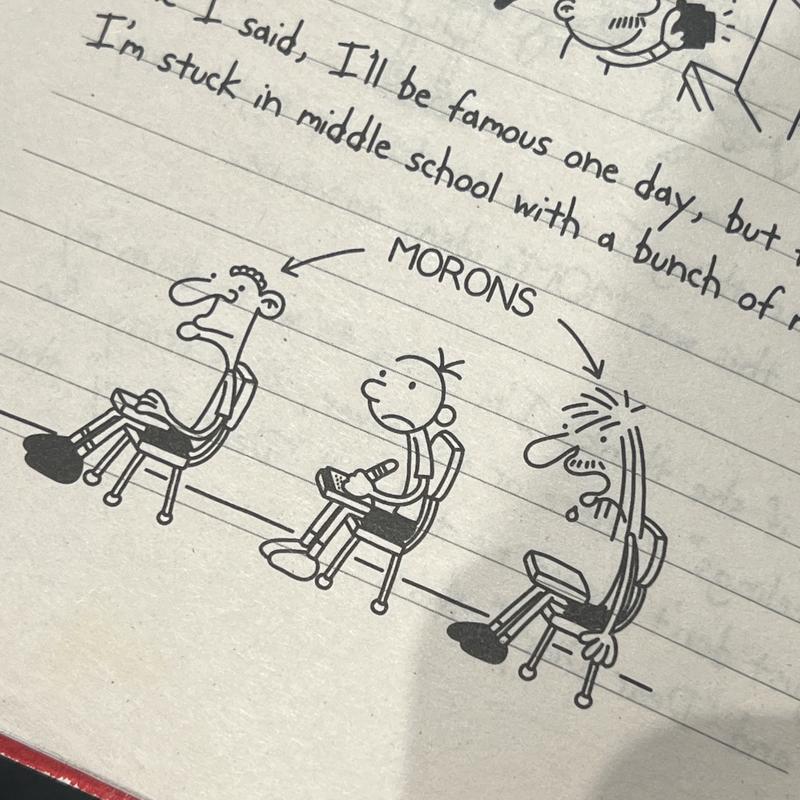 I said, I'll be famous one day, but
I'm stuck in middle school with a bunch of
MORONS